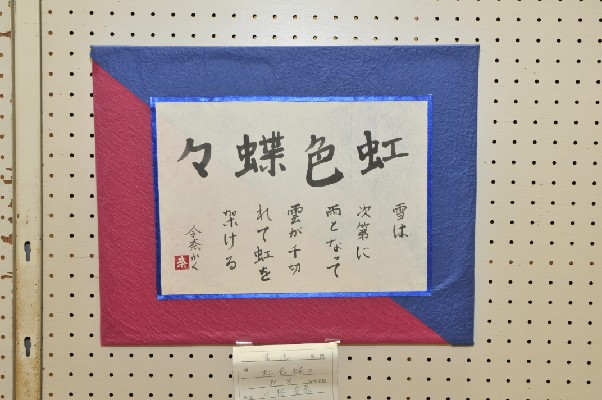 虹色蝶々
雪は
次第に
雨となって
雲が千切
れて虹を
架ける